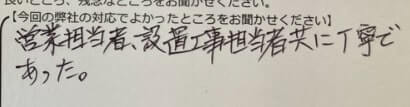 良いところ、残念なところをお聞かせください。
【今回の弊社の対応でよかったところをお聞かせください】
営業担当者、設置工事担当者共に丁寧で
あった。